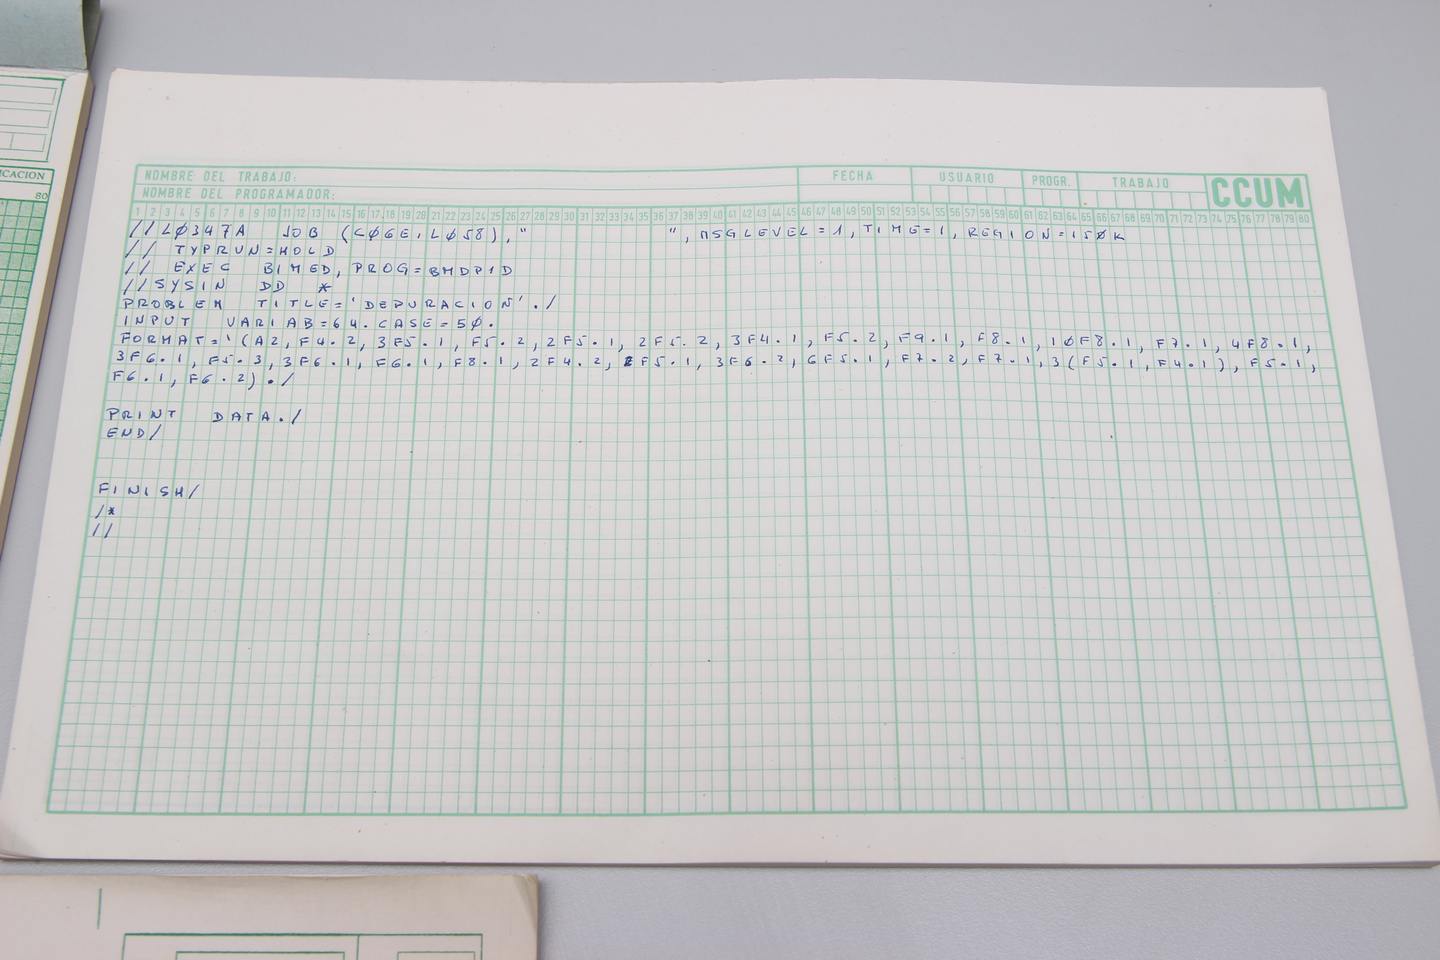 ICACION
80
NOMBRE DEL TRABAJO:
FECHA USUARIO PROGR. TRABAJO CCUM
NOMBRE DEL PROGRAMADOR:
1 2 3 4 5 6 7 8 9 10 11 12 13 14 15 16 17 18 19 20 21 22 23 24 25 26 27 28 29 30 31 32 33 34 35 36 37 38 39 40 41 42 43 44 45 46 47 48 49 50 51 52 53 54 55 56 57 58 59 60 61 62 63 64 65 66 67 68 69 70 71 72 73 74 75 76 77 78 79 80
//LØ347A JOB (CØ6E,LØ58)," ",MSGLEVEL=1,TIME=1,REGION=15ØK
// TYPRUN=HOLD
// EXEC BIMED,PROG=BMDP1D
//SYSIN DD *
PROBLEM TITLE='DEPURACION'./
INPUT VARIAB=64.CASE=5Ø.
FORMAT='(A2,F4.2,3F5.1,F5.2,2F5.1,2F5.2,3F4.1,F5.2,F9.1,F8.1,1ØF8.1,F7.1,4F8.1,
3F6.1,F5.3,3F6.1,F6.1,F8.1,2F4.2,2F5.1,3F6.2,6F5.1,F7.2,F7.1,3(F5.1,F4.1),F5.1,
F6.1,F6.2)./
PRINT DATA./
END/
FINISH/
/*
//